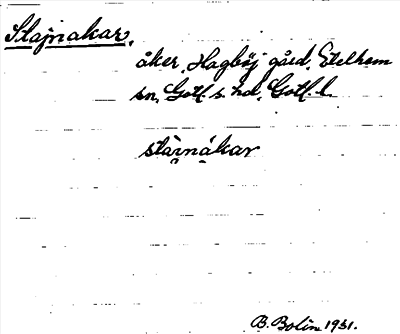 Slajnakar,
åker, Hagböj gård, Etelhem
sn, Gotl. s. hd, Gotl. l.
starnákar
B. Bolin 1931.